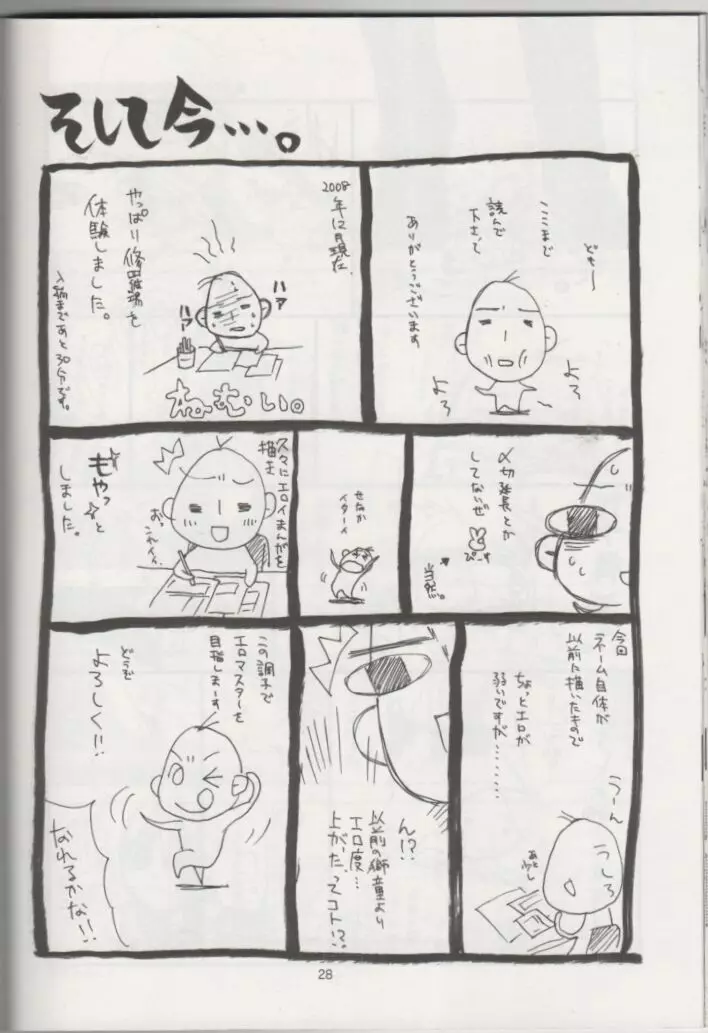 そして今…。
どもー
ここまで
読んで
下さって
ありがとうございます
よろ
よろ
2008年12月現在、
やっぱり修羅場を
体験しました。
入稿まであと30分です。
ハァ
ハァ
ねむい。
〆切延長とか
してないぜ
ぴーす
当然。
せなか
イターイ
久々にエロイまんがを
描き
もやっと
しました。
お、
これイイ、
今回
ネーム自体が
以前に描いたもので
ちょっとエロが
弱いですが………
うーん
うしろ
あと少し
ん!?
以前の獅童より
エロ度…
上がったってコト!?
この調子で
エロマスターを
目指しまーす
どうぞ
よろしく!!
なれるかな!!
28